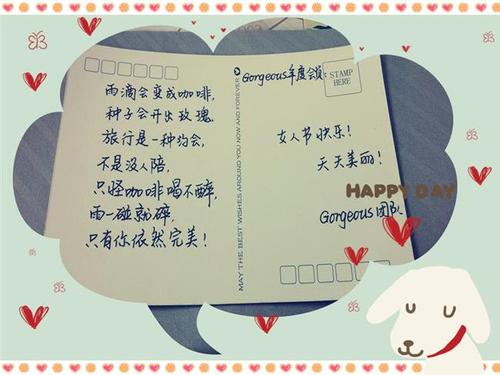 雨滴会变成咖啡,
种子会开出玫瑰.
旅行是一种约会,
不是没人陪.
只怪咖啡喝不醉,
雨一碰就碎,
只有你依然完美!
MAY THE BEST WISHES AROUND YOU NOW AND FOREVER
Gorgeous年度会员:
STAMP
HERE
女人节快乐!
天天美丽!
HAPPY DAY
Gorgeous团队